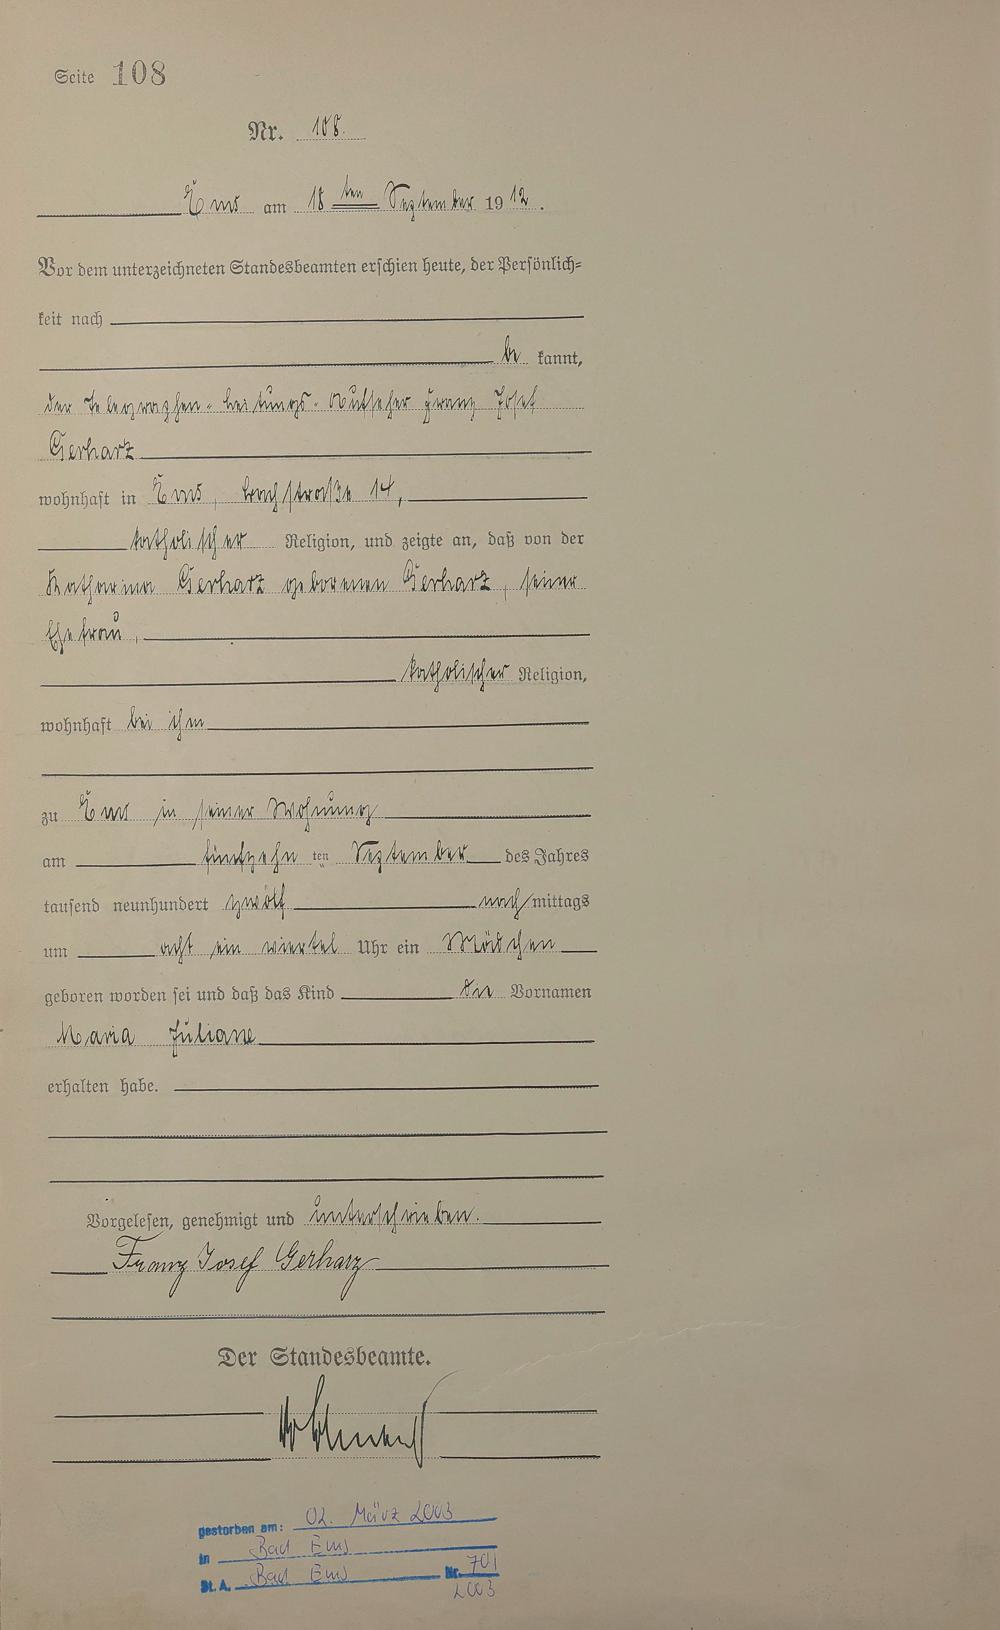 Seite 108
Nr. 108.
Ems am 18 ten September 1912.
Vor dem unterzeichneten Standesbeamten erschien heute, der Persönlich=
keit nach
be kannt,
der Telegraphen-Leitungs-Aufseher Franz Josef
Gerharz
wohnhaft in Ems, Bachstraße 14,
katholischer Religion, und zeigte an, daß von der
Katharina Gerharz geborenen Gerharz, seiner
Ehefrau,
katholischer Religion,
wohnhaft bei ihm
zu Ems in seiner Wohnung
am fünfzehn ten September des Jahres
tausend neunhundert zwölf nach mittags
um acht ein viertel Uhr ein Mädchen
geboren worden sei und daß das Kind die Vornamen
Maria Juliane
erhalten habe.
Vorgelesen, genehmigt und unterschrieben.
Franz Josef Gerharz
Der Standesbeamte.
gestorben am: 02. März 2003
in Bad Ems
St. A. Bad Ems Nr. 701
2003